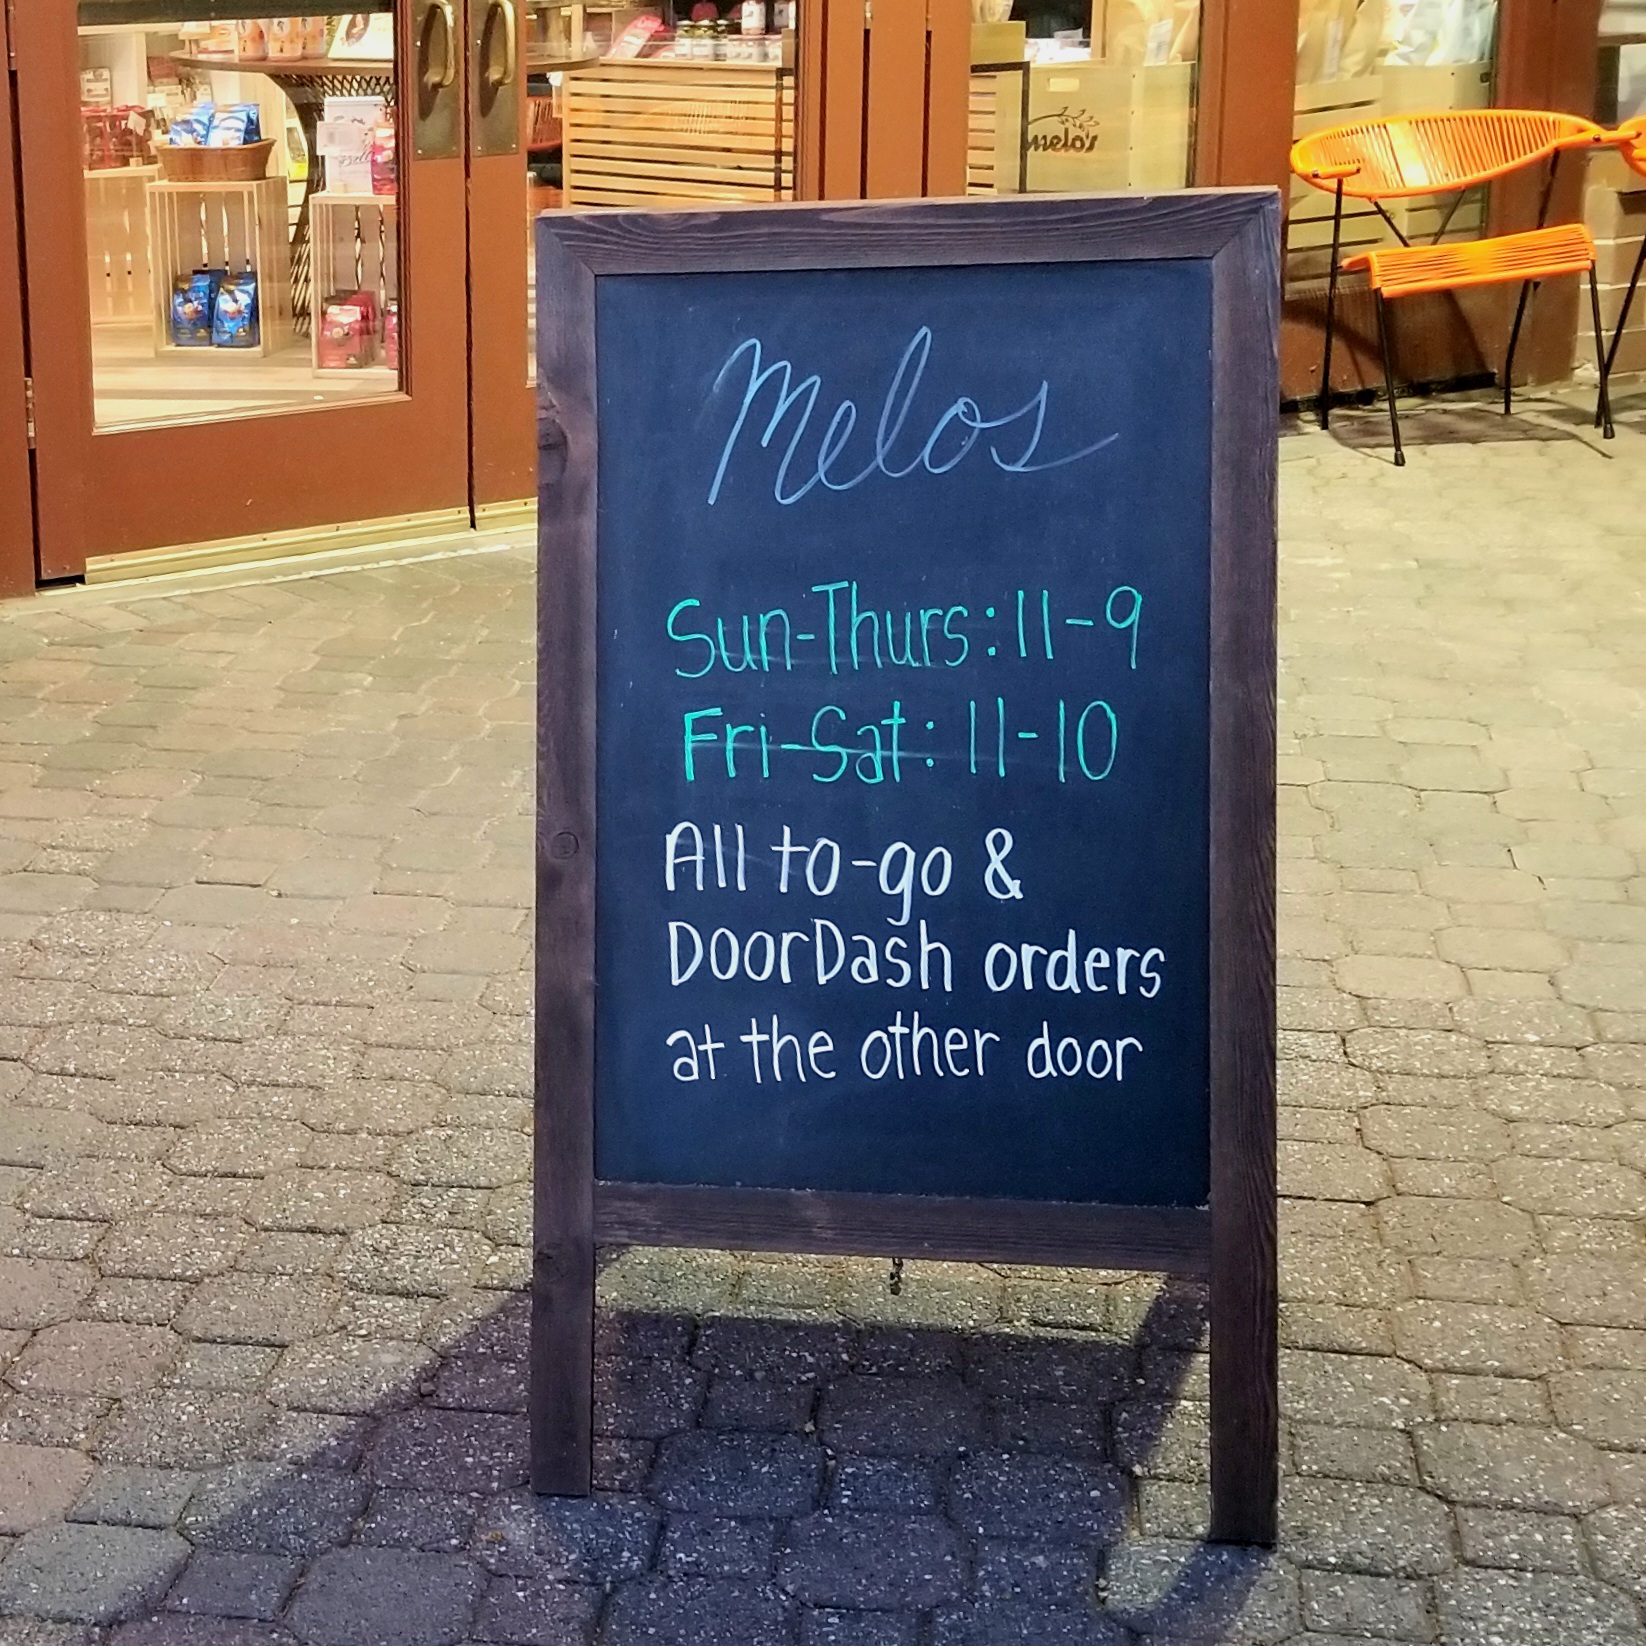 melo's
Melos
Sun-Thurs: 11-9
Fri-Sat: 11-10
All to-go &
DoorDash orders
at the other door